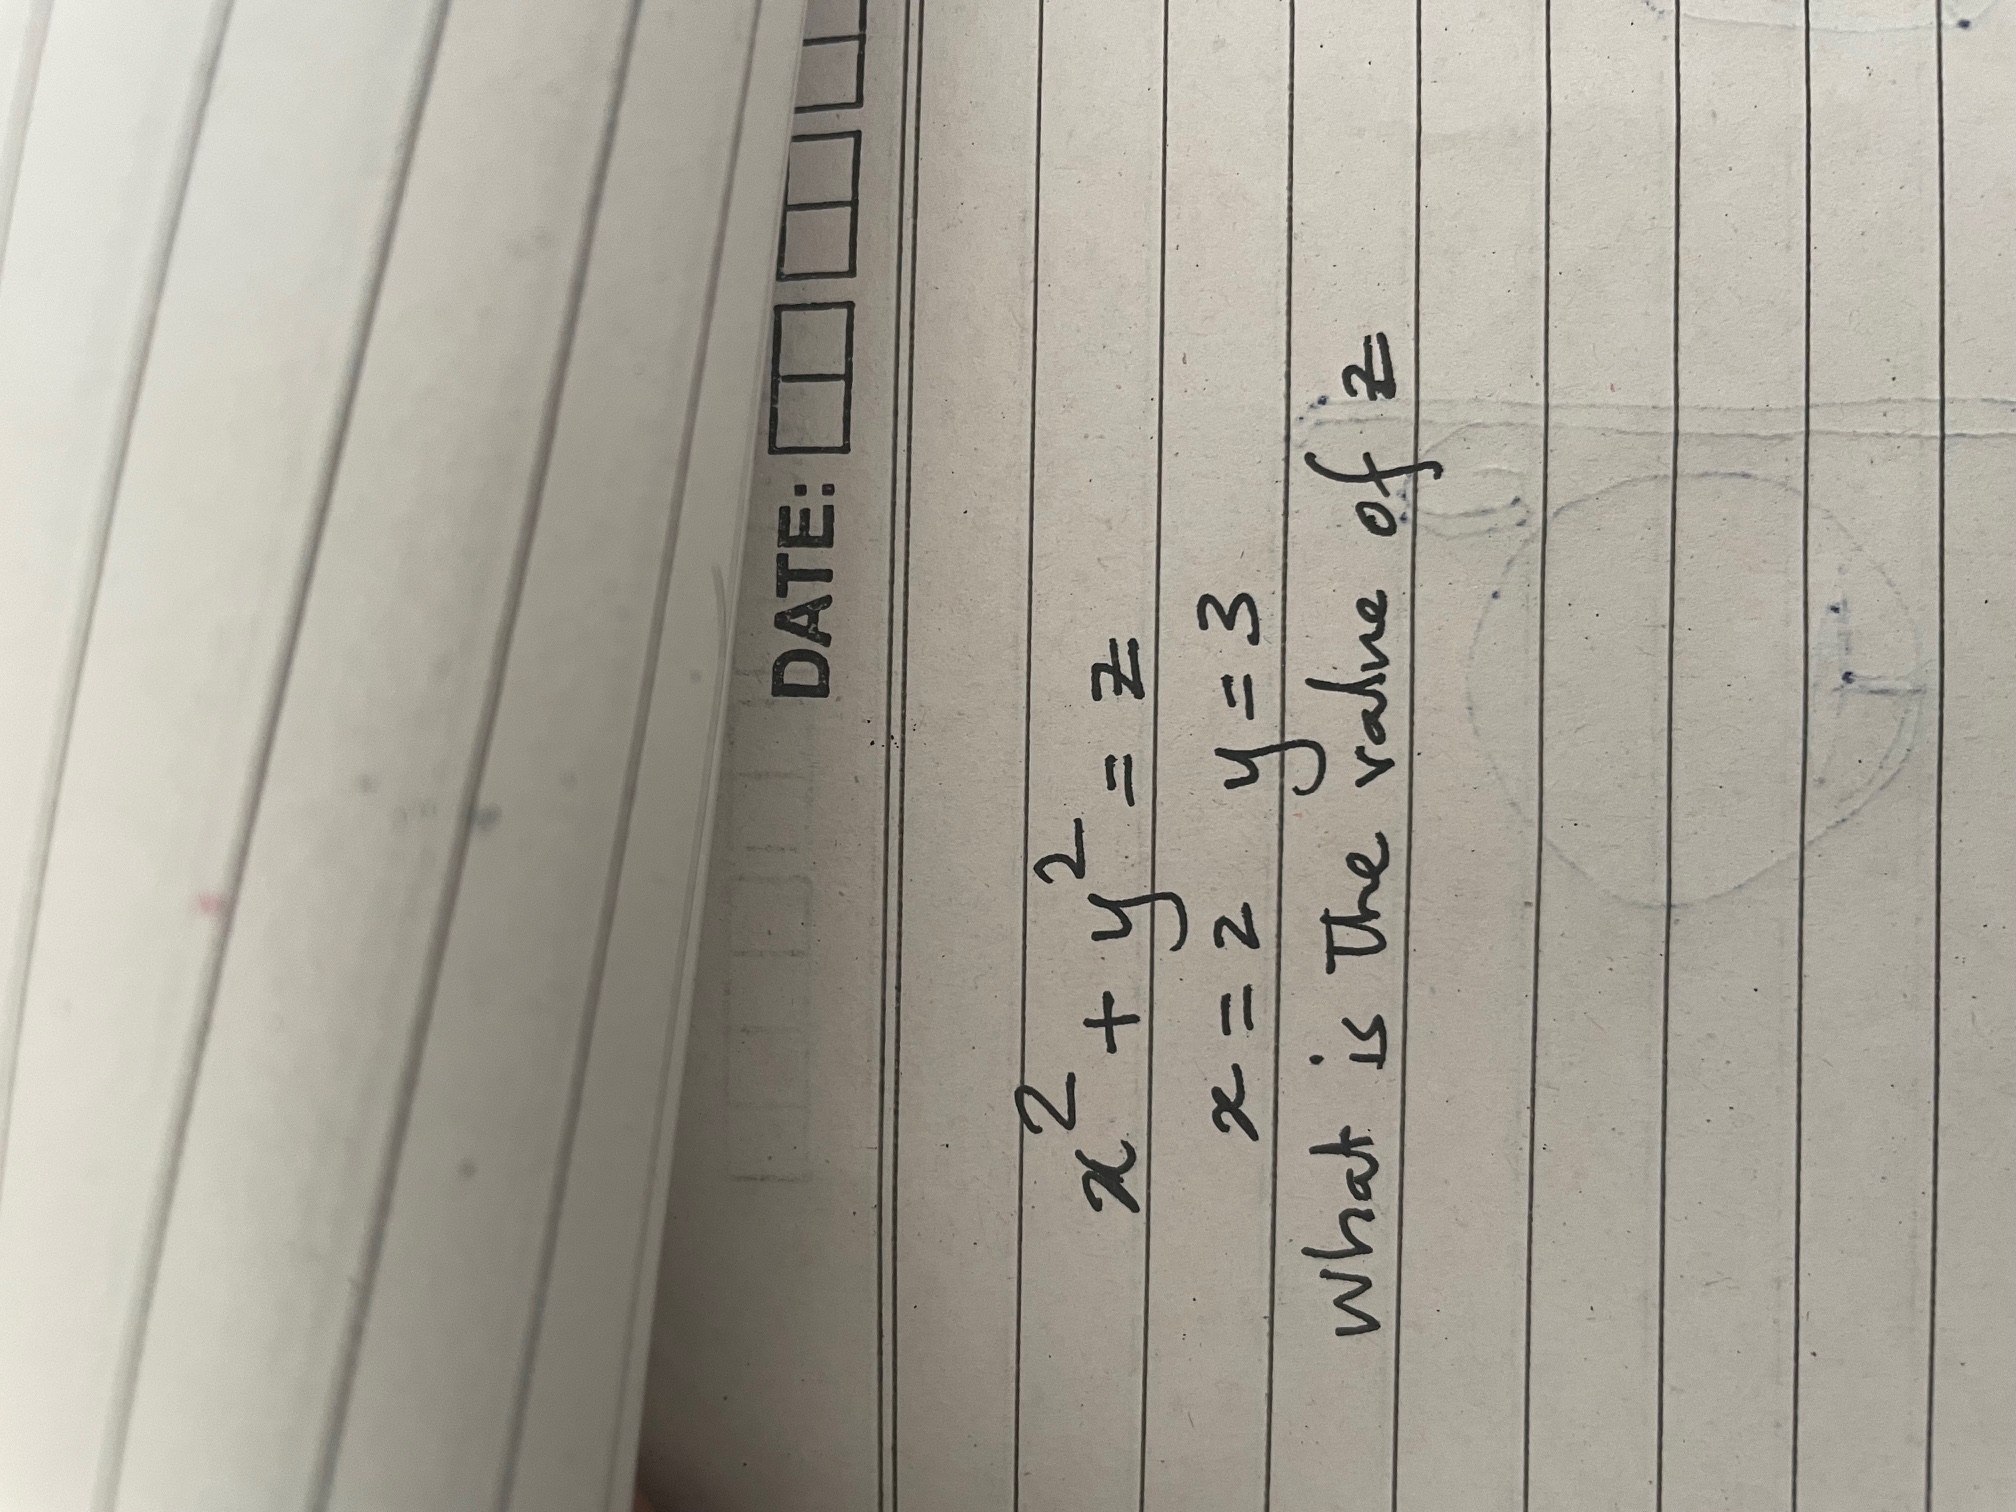 DATE:
x² + y² = z
x = 2 y = 3
What is the value of z